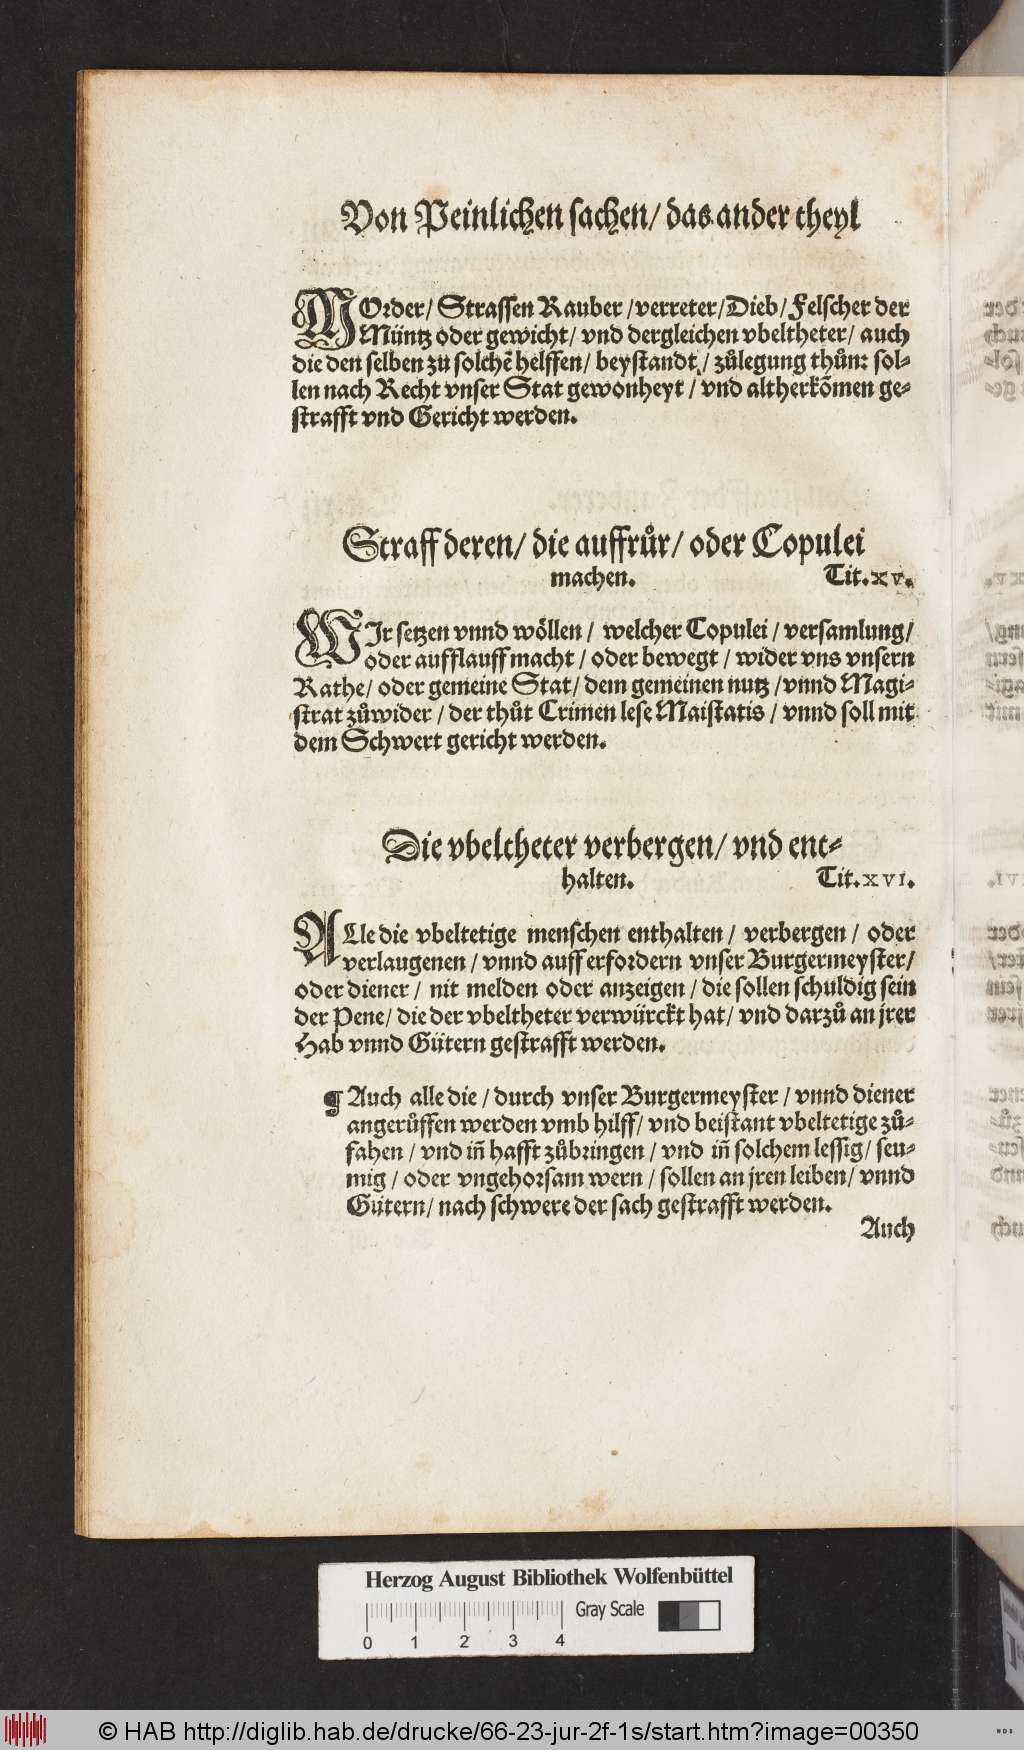 Von Peinlichen sachen/ das ander theyl
MOrder/ Strassen Rauber /verreter/Dieb/ Felscher der
Müntz oder gewicht/ vnd dergleichen vbeltheter/ auch
die den selben zu solchẽ helffen/ beystandt/ zůlegung thůn: sol⸗
len nach Recht vnser Stat gewonheyt / vnd altherkõmen ge⸗
strafft vnd Gericht werden.
Straff deren/ die auffrůr/ oder Copulei
machen. Tit.xv.
WIr setzen vnnd wöllen / welcher Copulei / versamlung/
oder aufflauff macht / oder bewegt / wider vns vnsern
Rathe/ oder gemeine Stat/ dem gemeinen nutz /vnnd Magi⸗
strat zůwider / der thůt Crimen lese Maistatis / vnnd soll mit
dem Schwert gericht werden.
Die vbeltheter verbergen/ vnd ent⸗
halten. Tit.xvi.
ALle die vbeltetige menschen enthalten / verbergen / oder
verlaugenen / vnnd auff erfordern vnser Burgermeyster/
oder diener / nit melden oder anzeigen / die sollen schuldig sein
der Pene/ die der vbeltheter verwürckt hat/ vnd darzů an jrer
Hab vnnd Gütern gestrafft werden.
¶ Auch alle die / durch vnser Burgermeyster / vnnd diener
angerůffen werden vmb hilff/ vnd beistant vbeltetige zů⸗
fahen / vnd iñ hafft zůbringen / vnd iñ solchem lessig/ seu⸗
mig / oder vngehorsam wern / sollen an jren leiben/ vnnd
Gütern/ nach schwere der sach gestrafft werden.
Auch
Herzog August Bibliothek Wolfenbüttel
Gray Scale
0 1 2 3 4
© HAB http://diglib.hab.de/drucke/66-23-jur-2f-1s/start.htm?image=00350